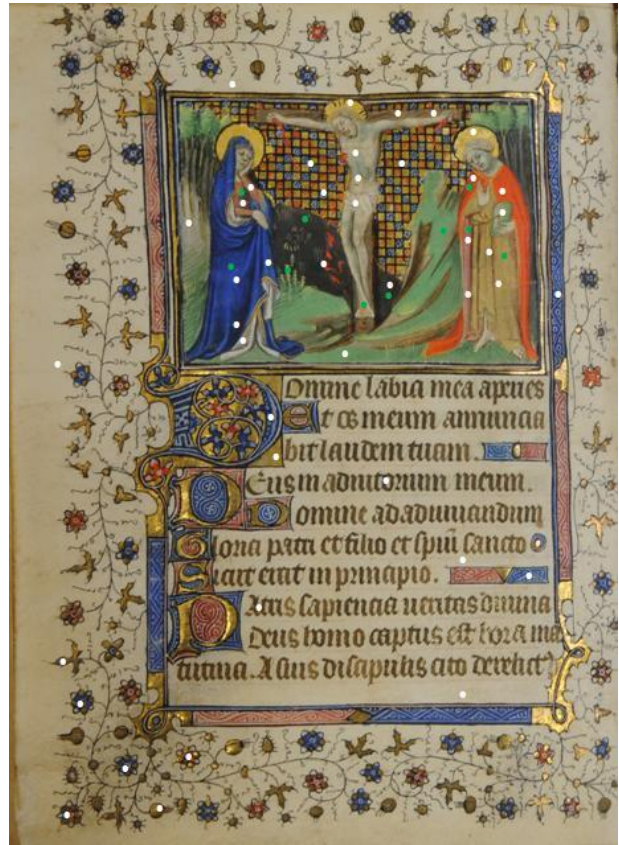 Domine labia mea aperies
et os meum annuncia
bit laudem tuam.
Deus in adiutorium meum.
Domine ad adiuuandum
Gloria patri et filio et spiũ sancto
Sicut erat in principio.
Patris sapiencia ueritas diuina
Deus homo captus est hora ma
tutina. A suis discipulis cito derelict⁹